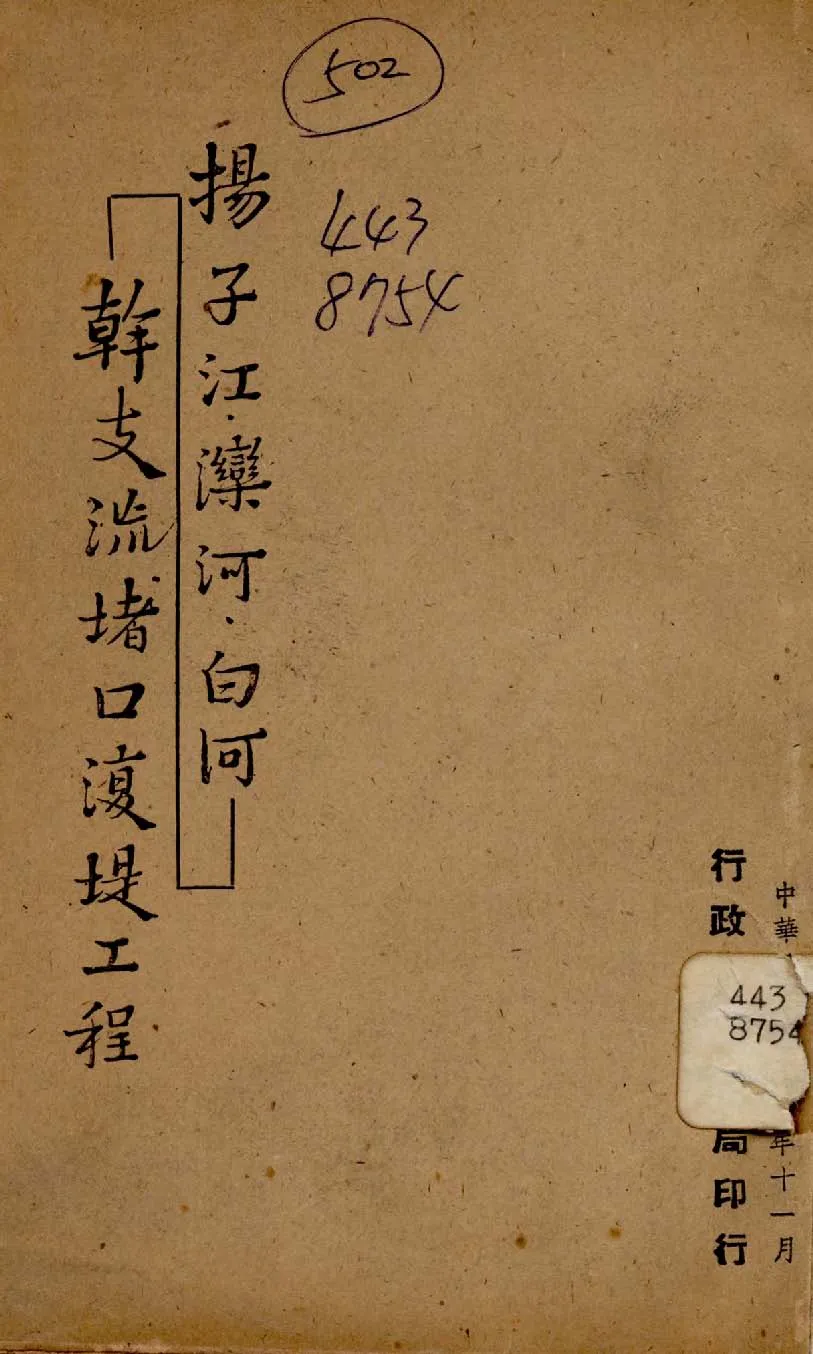 502
443
8754
揚子江·灤河·白河
幹支流堵口復堤工程
中華
年十一月
行政
局印行
443
8754